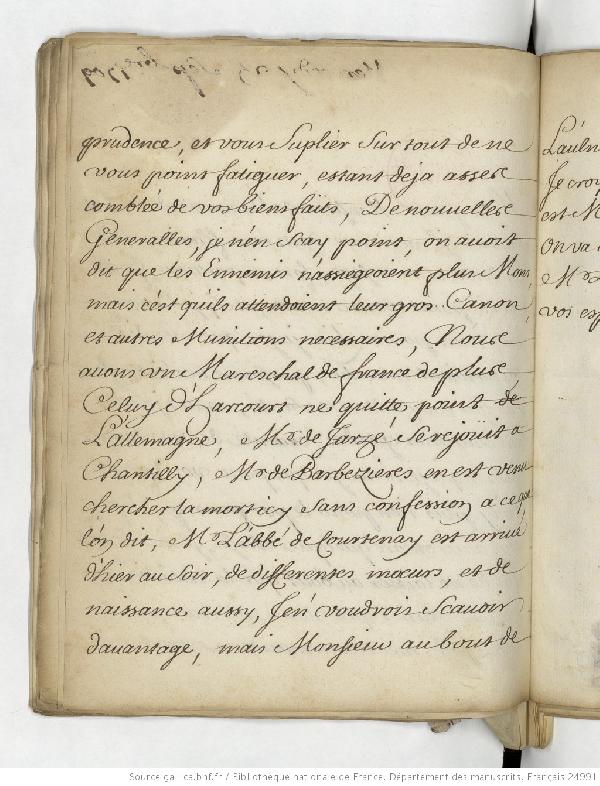 prudence, et vous Suplier Sur tout de ne
vous point fatiguer, estant deja assese
comblée de vos biens faits, De nouvellese
Generalles, je n'en Scay point, on avoit
dit que les Ennemis n'assiegeoient plus Mons
mais c'est qu'ils attendoient leur gros Canon
et autres Munitions necessaires, Nouse
auons vn Mareschal de france de pluse
Celuy d'Harcourt ne quitte point de
L'allemagne, Mr. de Jarzé Se rejouit a
Chantilly, Mr de Barbezieres en est venu
chercher la mort icy Sans confession a ce que
l'on dit, Mr L'abbé de Courtenay est arriué
d'hier au Soir, de differentes mœurs, et de
naissance aussy, J'en voudrois Scauoir
dauantage, mais Monsieur au bout de
Je croy
est M
On va
vos esp
Source gallica.bnf.fr / Bibliothèque nationale de France. Département des manuscrits. Français 24991